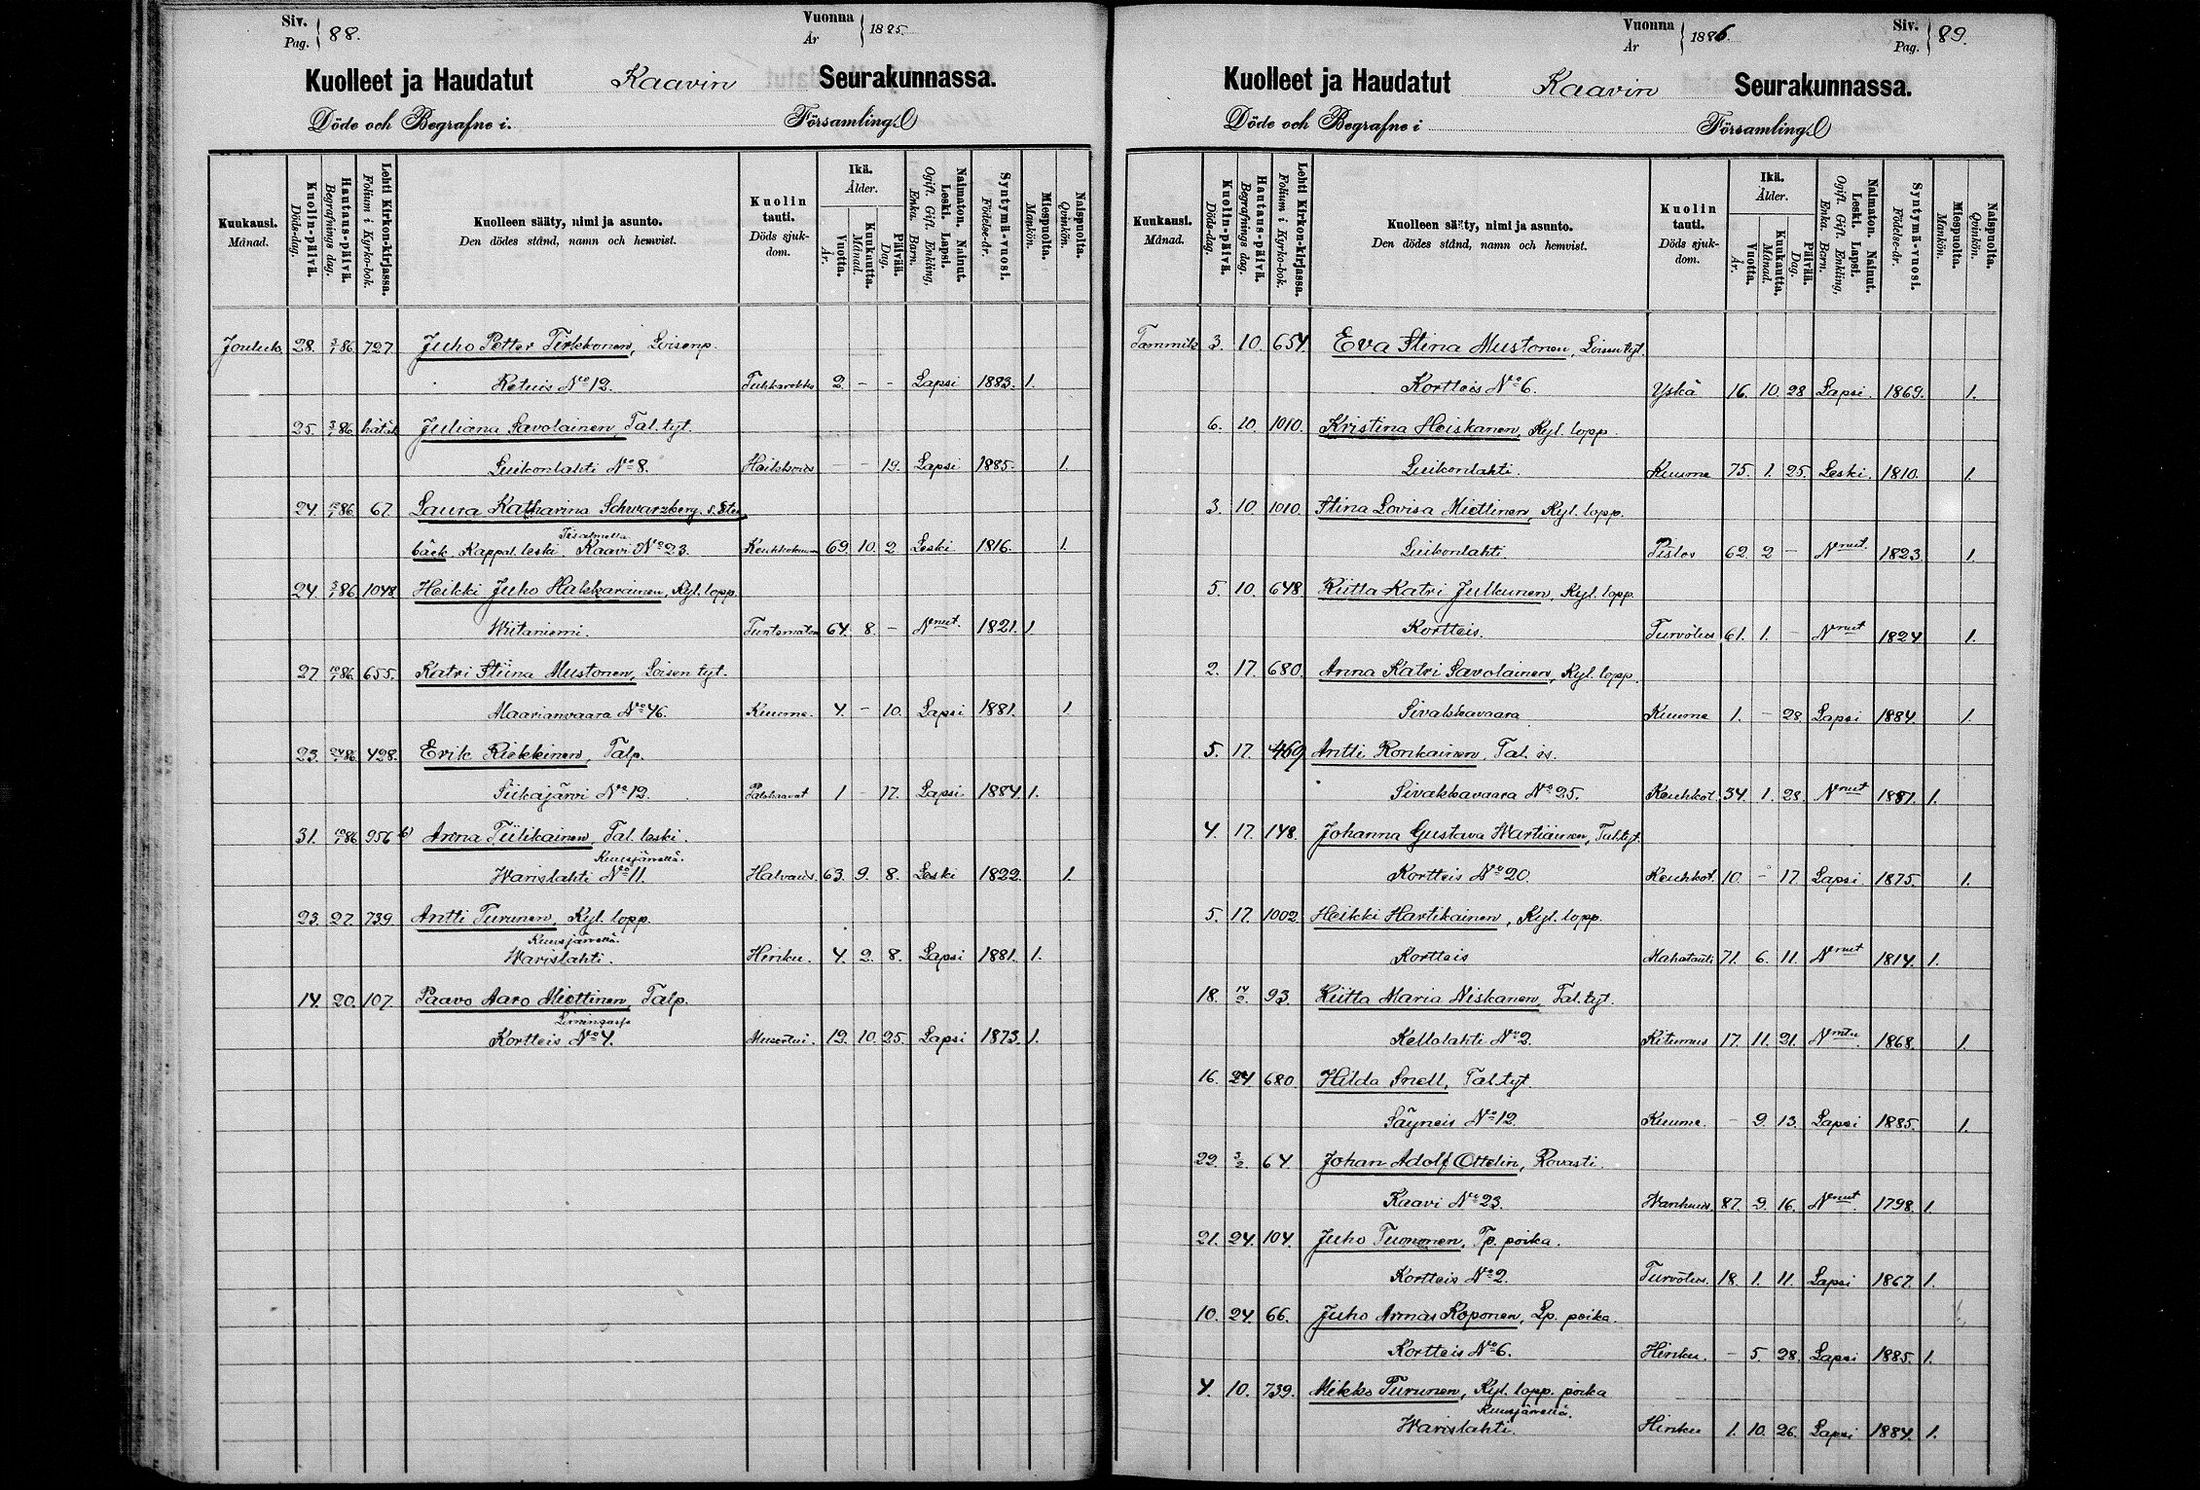 Siv. Pag. 88. Vuonna År 1885.
Kuolleet ja Haudatut Kaavin Seurakunnassa.
Döde och Begrafne i Församling
Kuukausi. Månad. Kuolin-päivä. Döds-dag. Hautaus-päivä. Begrafnings dag. Lehti Kirkon-kirjassa. Folium i Kyrko-bok. Kuolleen sääty, nimi ja asunto. Den dödes stånd, namn och hemvist. Kuolin tauti. Döds sjuk-dom. Ikä. Ålder. Vuotta. År. Kuukautta. Månad. Päivää. Dag. Naimaton. Nainut. Leski. Lapsi. Ogift. Gift. Enkling, Enka. Barn. Syntymä-vuosi. Födelse-år. Miespuolta. Mankön. Naispuolta. Qvinkön.
Jouluk. 28. 3/1 86 727 Juho Petter Tirkkonen, Loisenp.
Retuis No 12. Tuhkarokko 2. - - Lapsi 1883. 1.
25. 3/1 86 hät.k Juliana Savolainen, Tal. tyt.
Luikonlahti No 8. Heikkous - - 19. Lapsi 1885. 1.
24. 10/1 86 67. Laura Katharina Schwarzberg s. Ste
bäck, Kappal. leski Iisalmella Kaavi No 23. Keuhkokuume 69. 10. 2 Leski 1816. 1.
24. 3/1 86 1048 Heikki Juho Hakkarainen, Kyl. lopp.
Wiitaniemi. Tuntematon 64. 8. - Nnut. 1821. 1
27 10/1 86 655. Katri Stiina Mustonen, Loisen tyt.
Maarianvaara No 46. Kuume. 4. - 10. Lapsi 1881. 1.
23. 24/1 86 428. Erik Riekkinen, Talp.
Siikajärvi No 12. 1 - 17. Lapsi 1884 1.
31. 10/1 86 956 Anna Tiilikainen, Tal. leski.
Kuusjärvellä.
Warislahti No 11. Halvaus. 63. 9. 8. Leski 1822. 1.
23. 27. 739 Antti Turunen, Kyl. lopp.
Kuusjärvellä.
Warislahti. Hinku. 4. 2. 8. Lapsi 1881. 1.
14. 20. 107 Paavo Aaro Miettinen, Talp.
Kortteis No 4. 12. 10. 25. Lapsi 1873. 1.
Vuonna År 1886. Siv. Pag. 89.
Kuolleet ja Haudatut Kaavin Seurakunnassa.
Döde och Begrafne i Församling
Kuukausi. Månad. Kuolin-päivä. Döds-dag. Hautaus-päivä. Begrafnings dag. Lehti Kirkon-kirjassa. Folium i Kyrko-bok. Kuolleen sääty, nimi ja asunto. Den dödes stånd, namn och hemvist. Kuolin tauti. Döds sjuk-dom. Ikä. Ålder. Vuotta. År. Kuukautta. Månad. Päivää. Dag. Naimaton. Nainut. Leski. Lapsi. Ogift. Gift. Enkling, Enka. Barn. Syntymä-vuosi. Födelse-år. Miespuolta. Mankön. Naispuolta. Qvinkön.
Tammik 3. 10. 654. Eva Stina Mustonen, Loisen tyt.
Kortteis No 6. Yskä 16. 10. 28 Lapsi. 1869. 1.
6. 10. 1010. Kristina Heiskanen, Kyl. lopp.
Luikonlahti. Kuume 75. 1. 25. Leski. 1810. 1.
3. 10. 1010. Stina Lovisa Miettinen, Kyl. lopp.
Luikonlahti Pistos 62. 2 - Nnut. 1823 1.
5. 10. 648 Riitta Katri Julkunen, Kyl. lopp.
Kortteis. Turvotus 61. 1. - Nnut 1824 1.
2. 17. 680. Anna Katri Savolainen, Kyl. lopp.
Sivakkavaara Kuume 1. - 28. Lapsi 1884. 1.
5. 17. 469 Antti Ronkainen, Tal. is.
Sivakkavaara No 25. Keuhkot. 34. 1. 28. Nnut 1851. 1.
4. 17. 148. Johanna Gustava Wartiainen, Tal. tyt.
Kortteis No 20. Keuhkot. 10. - 17 Lapsi 1875. 1.
5. 17. 1002. Heikki Hartikainen, Kyl. lopp.
Kortteis Mahatauti 71. 6. 11. Nnut 1814. 1.
18. 14/2 93. Riitta Maria Niskanen, Tal. tyt.
Kellolahti No 2. Kitumus 17. 11. 21. Nmtn. 1868. 1.
16. 24. 680 Hilda Snell, Tal. tyt.
Säyneis No 12. Kuume. - 9. 13. Lapsi 1885. 1.
22. 3/2 64. Johan Adolf Ottelin, Rovasti.
Kaavi No 23. Wanhuus 87. 9. 16. Nnut. 1798. 1.
21. 24. 104. Juho Tuononen, Tp. poika.
Kortteis No 2. Turvotus. 18. 1. 11. Lapsi 1867. 1.
10. 24. 66. Juho Armas Koponen, Lp. poika.
Kortteis No 6. Hinku. - 5. 28. Lapsi 1885. 1.
4. 10. 739. Mikko Turunen, Kyl. lopp. poika
Kuusjärvellä.
Warislahti. Hinku 1. 10. 26. Lapsi 1884. 1.